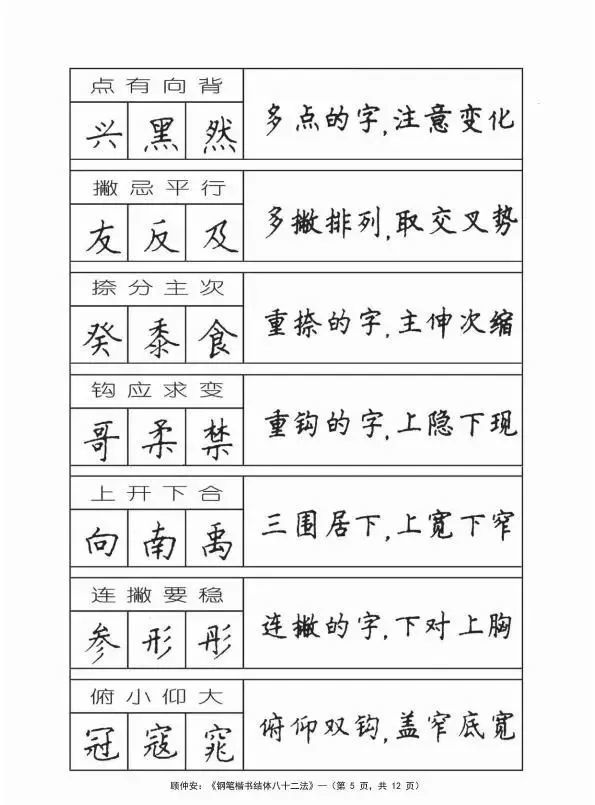 点有向背
兴 黑 然
多点的字,注意变化
撇忌平行
友 反 及
多撇排列,取交叉势
捺分主次
癸 黍 食
重捺的字,主伸次缩
钩应求变
哥 柔 禁
重钩的字,上隐下现
上开下合
向 南 禹
三围居下,上宽下窄
连撇要稳
参 形 彤
连撇的字,下对上胸
俯小仰大
冠 寇 窕
俯仰双钩,盖窄底宽
顾仲安:《钢笔楷书结体八十二法》—(第 5 页,共 12 页)